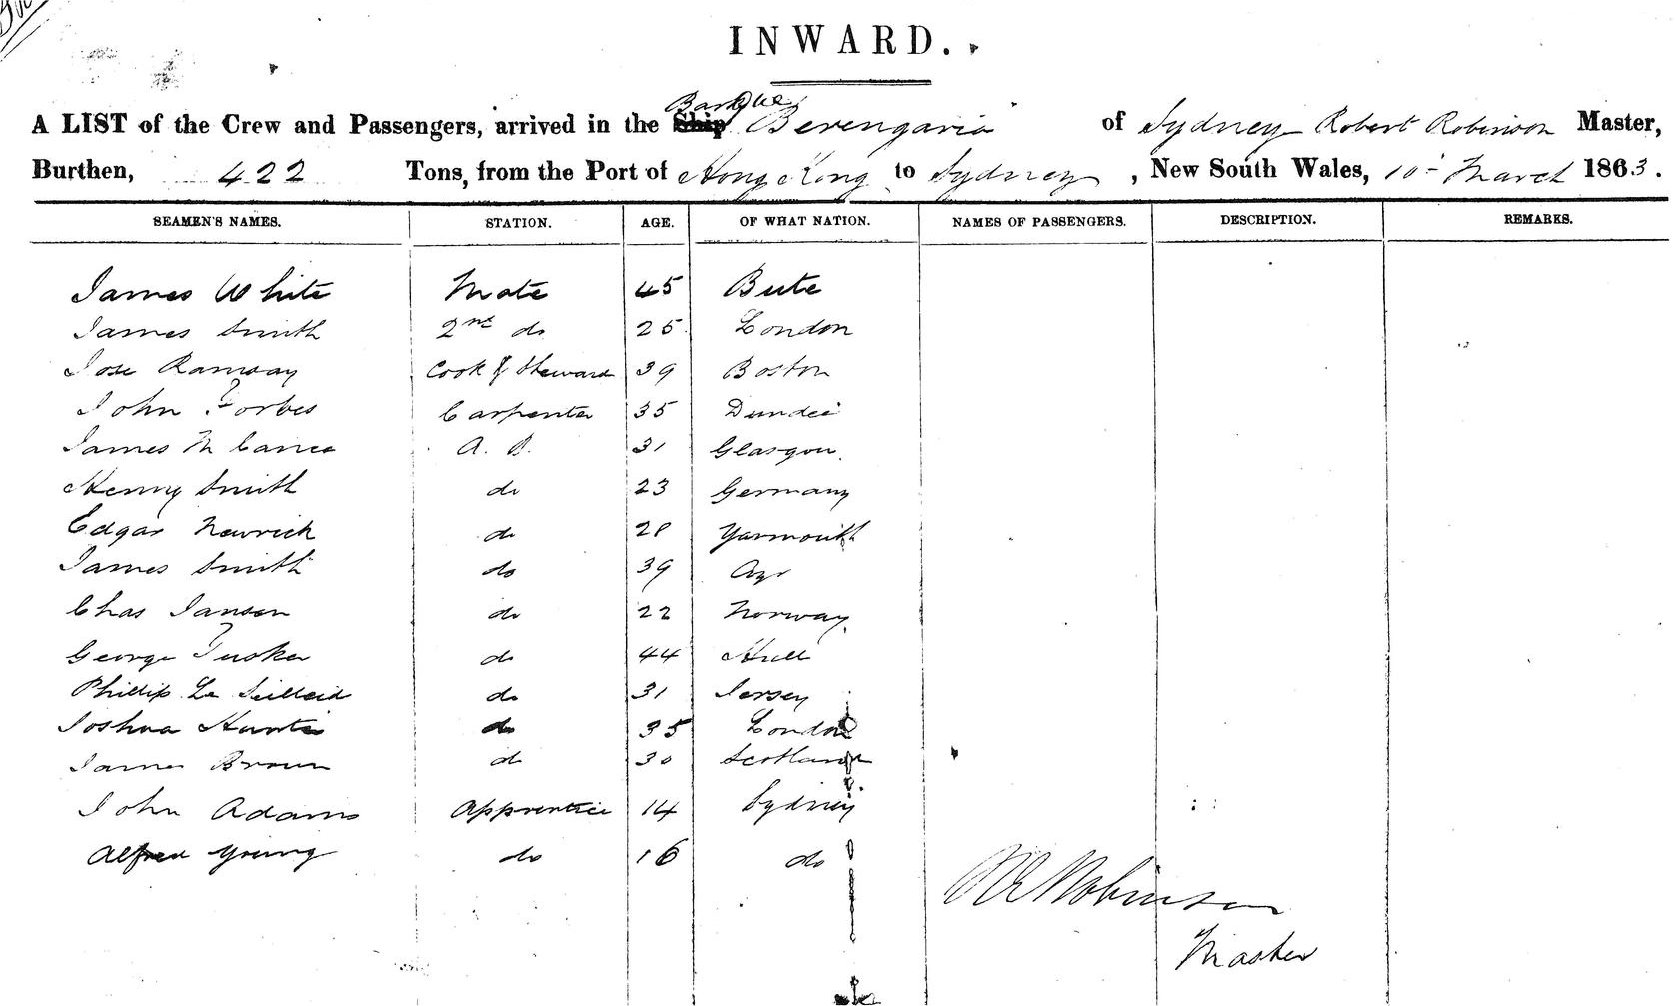 INWARD.
A LIST of the Crew and Passengers, arrived in the Ship Barque Berengaria of Sydney Robert Robinson Master,
Burthen, 422 Tons, from the Port of Hong Kong to Sydney, New South Wales, 10 March 1863.
SEAMEN'S NAMES. STATION. AGE. OF WHAT NATION. NAMES OF PASSENGERS. DESCRIPTION. REMARKS.
James White Mate 45 Bute
James Smith 2nd do 25 London
Jose Ramsay Cook & Steward 39 Boston
John Forbes Carpenter 35 Dundee
James M Cance A. B. 31 Glasgow.
Henry Smith do 23 Germany
Edgar Newrick do 28 Yarmouth
James Smith do 39 Ayr
Chas Jansen do 22 Norway.
George Tusker do 44 Hull
Phillip Le do 31 Jersey
Joshua Hunter do 35 London
James Brown do 30 Scotland
John Adams Apprentice 14 Sydney
Alfred Young do 16 do
Robinson
Master